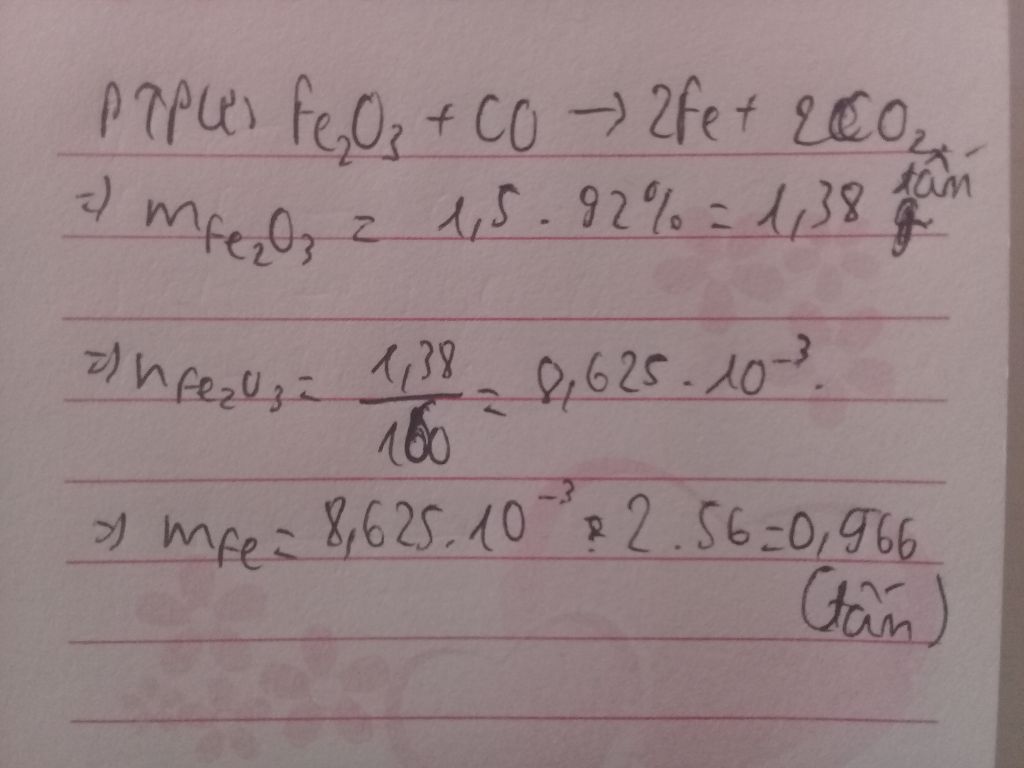 PTPƯ) Fe₂O₃ + CO → 2Fe + 2CO₂
=) mFe₂O₃ = 1,5 . 92% = 1,38 tấn
=) nFe₂O₃ = 1,38 / 160 = 8,625 . 10⁻³.
=) mFe = 8,625 . 10⁻³ . 2 . 56 = 0,966
(tấn)